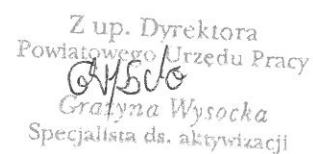 Z up. Dyrektora
Powiatowego Urzędu Pracy
Grażyna Wysocka
Specjalista ds. aktywizacji